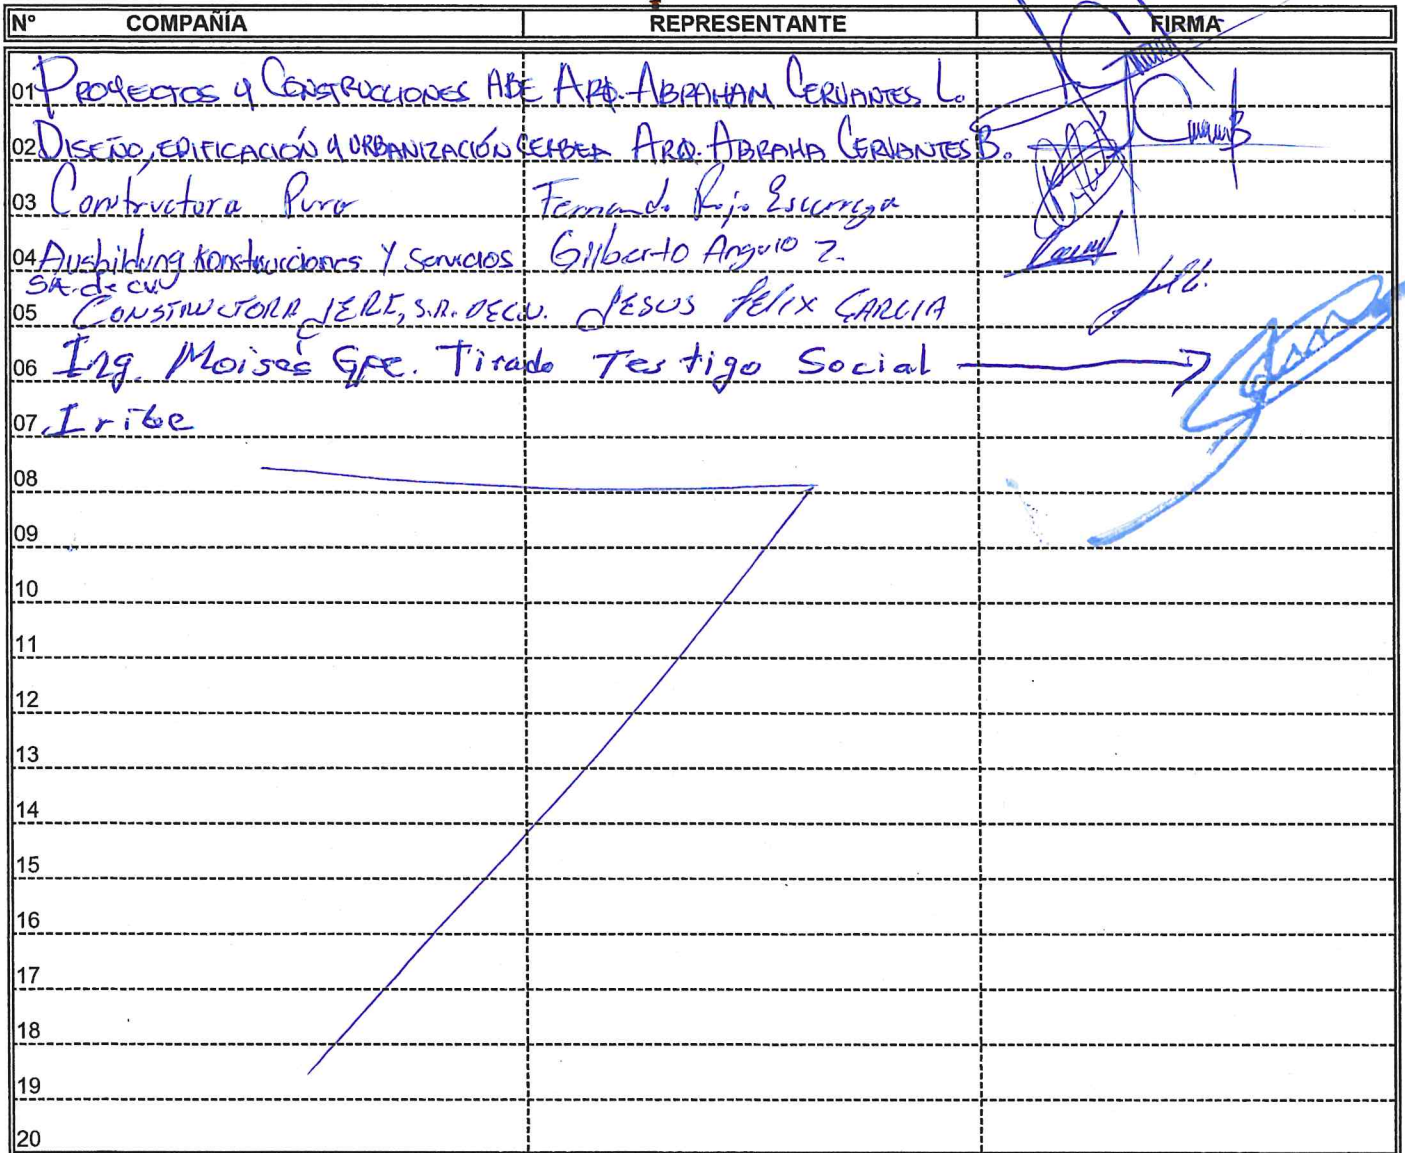 N° COMPAÑÍA REPRESENTANTE FIRMA
01 PROYECTOS Y CONSTRUCCIONES ABE ARQ. ABRAHAM CERVANTES L.
02 DISEÑO, EDIFICACIÓN Y URBANIZACIÓN CERBEA ARQ. ABRAHA CERVANTES B.
03 Constructora Puro Fernando Rojo
04 Ausbildung Konstrucciones Y Servicios Gilberto Angulo Z.
S.A. de C.V.
05 CONSTRUCTORA JERE, S.A. DE C.V. JESUS FELIX GARCIA
06 Ing. Moisés Gpe. Tirado Testigo Social
07 Iribe
08
09
10
11
12
13
14
15
16
17
18
19
20